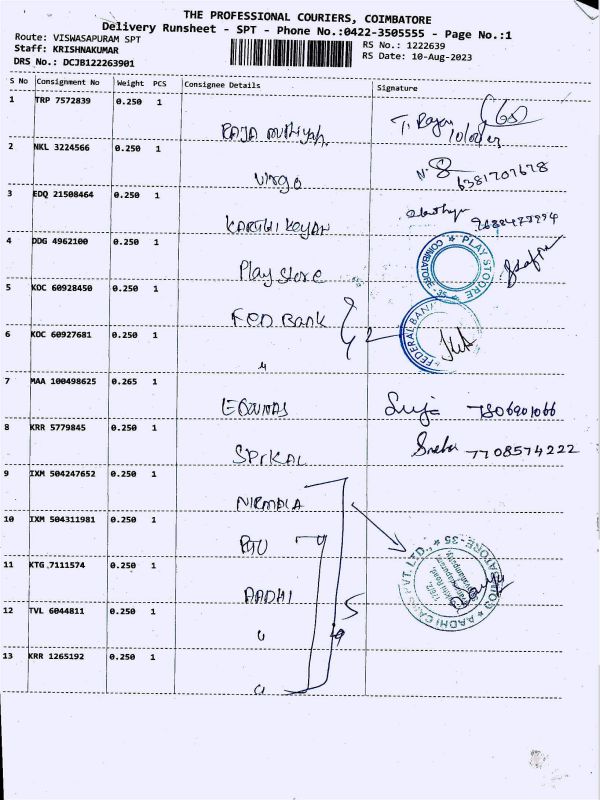 THE PROFESSIONAL COURIERS, COIMBATORE
Delivery Runsheet - SPT - Phone No.:0422-3505555 - Page No.:1
Route: VISWASAPURAM SPT
Staff: KRISHNAKUMAR
DRS No.: DCJB122263901
RS No.: 1222639
RS Date: 10-Aug-2023
S No Consignment No Weight PCS Consignee Details Signature
1 TRP 7572839 0.250 1
RAJA muthiyah
2 NKL 3224566 0.250 1
Virgo 6381707678
3 EDQ 21508464 0.250 1
KARTHI KEYAN
4 DDG 4962100 0.250 1
Play Store
PLAY STOORE COIMBATORE-35
5 KOC 60928450 0.250 1
FED BANK
2
FEDERAL BANK
6 KOC 60927681 0.250 1
"
7 MAA 100498625 0.265 1
8 KRR 5779845 0.250 1
7708574222
9 IXM 504247652 0.250 1
NIRMALA
10 IXM 504311981 0.250 1
11 KTG 7111574 0.250 1
AADHI
5
AADHI CARS PVT. LTD., COIMBATORE-35
12 TVL 6044811 0.250 1
"
13 KRR 1265192 0.250 1
"